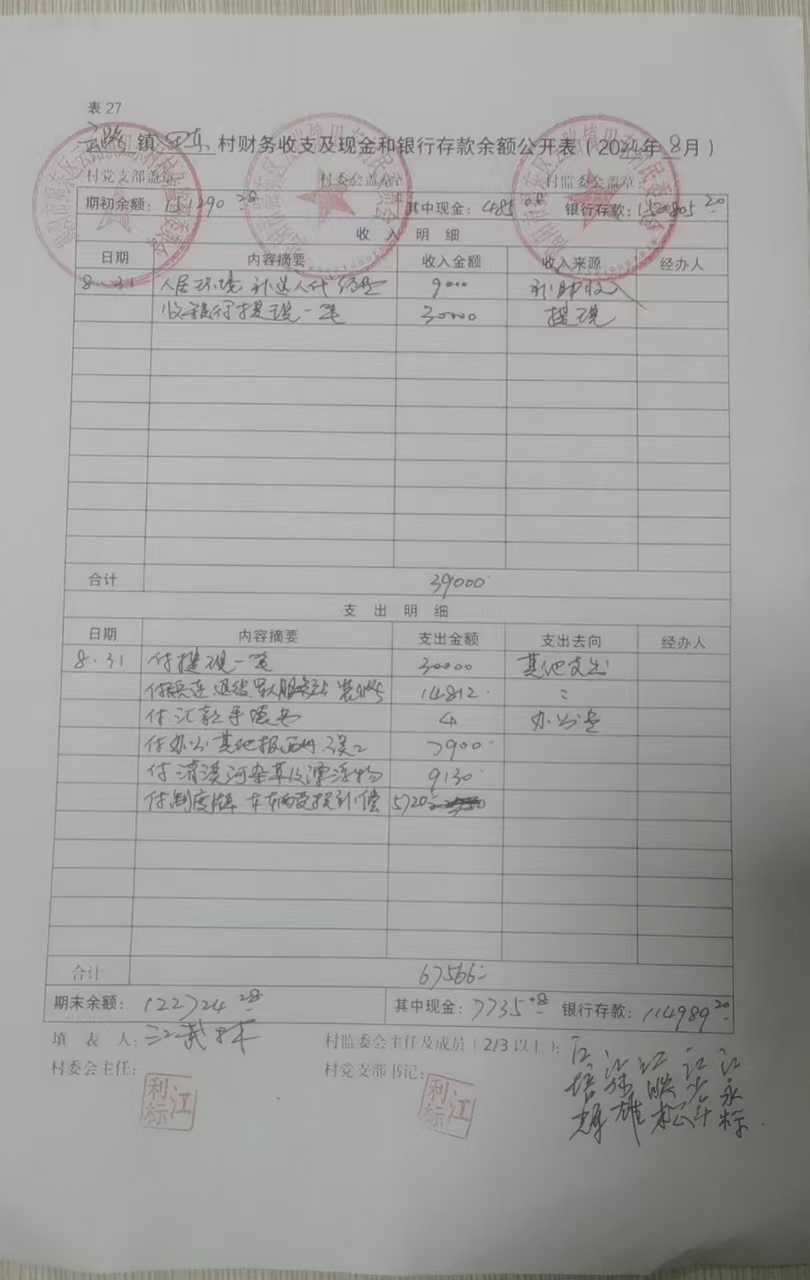 表 27
云路 镇 田东 村财务收支及现金和银行存款余额公开表（2024年 8月）
村党支部盖章 村委会盖章 村监委会盖章
期初余额：151290.28 其中现金：485.08 银行存款：150805.20
收 入 明 细
日期 内容摘要 收入金额 收入来源 经办人
8.31 人居环境 补选人代经费 9000 补助收入
收银行提现一笔 30000 提现
合计 39000
支 出 明 细
日期 内容摘要 支出金额 支出去向 经办人
8.31 付提现一笔 30000 其他支出
退役军人服务站 14812
付汇款手续费 4 办公费
付办公其他报酬 误工 7900
付清溪河杂草及漂浮物 9130
付制度牌 车辆受损补偿 5720
合计 67566
期末余额：122724.28 其中现金：7735.08 银行存款：114989.20
填 表 人： 村监委会主任及成员（2/3 以上）：
村委会主任： 村党支部书记：
江利标 江利标
江 江 江 江
雄 松 永标